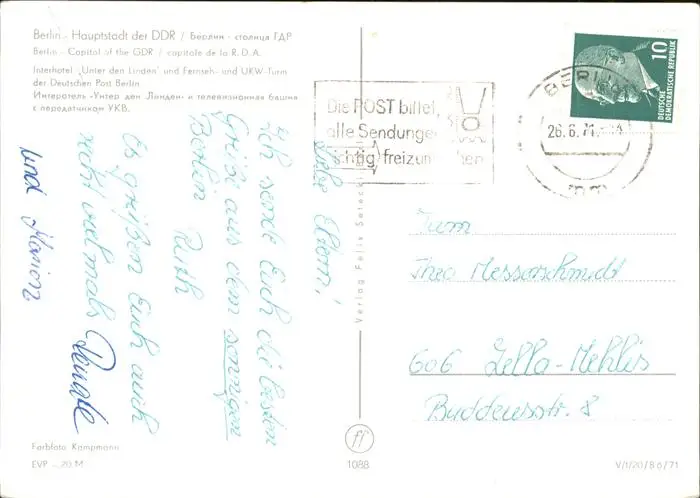 Berlin - Hauptstadt der DDR / Берлин - столица ГДР
Berlin - Capital of the GDR / capitale de la R. D. A.
Interhotel „Unter den Linden" und Fernseh- und UKW-Turm
der Deutschen Post Berlin
Интеротель «Унтер ден Линден» и телевизионная башня
с передатчиком УКВ.
Die POST bittet,
alle Sendungen
richtig freizumachen
BERLIN
26.6.71
10
DEUTSCHE
DEMOKRATISCHE REPUBLIK
Liebe Eltern!
Ich sende Euch die besten
Grüße aus dem sonnigen
Berlin
Ruth
Es grüßen Euch auch
recht vielmals
und Marion
Fam
Theo Messerschmidt
606 Zella-Mehlis
Buddeusstr. 8
Verlag Felix Setecki
Farbfoto Kampmann
EVP -,20 M
ff
1088
V/1/20/8 6/71